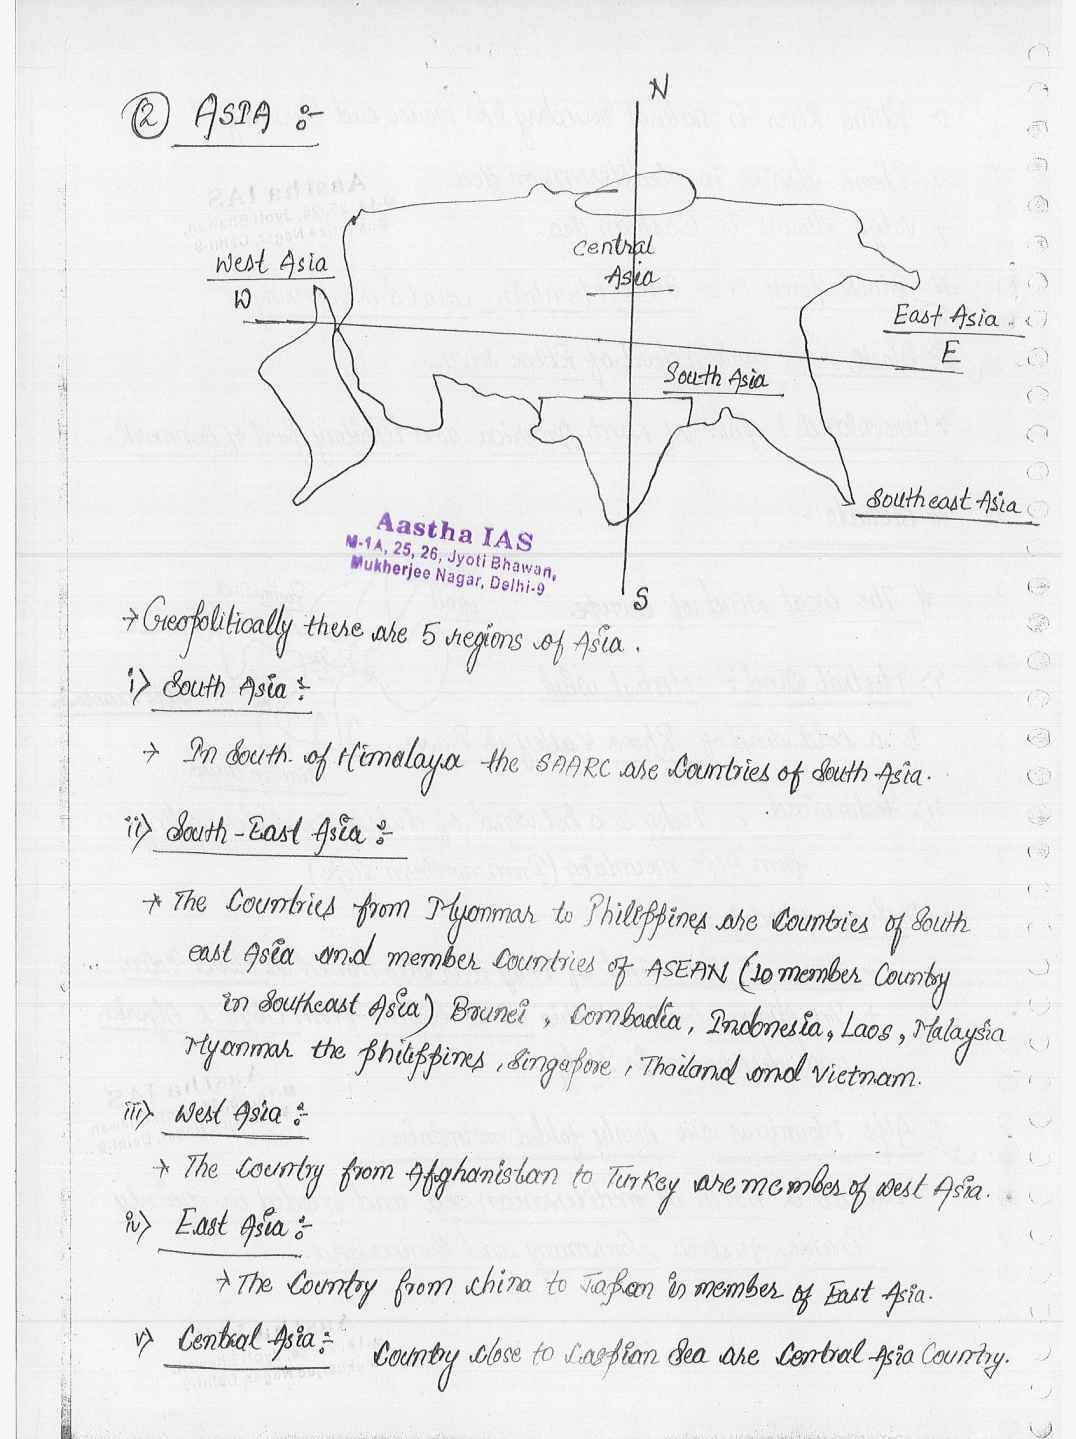 ② ASIA :-
N
Central
Asia
West Asia
W
East Asia
E
South Asia
Southeast Asia
Aastha IAS
M-1A, 25, 26, Jyoti Bhawan,
Mukherjee Nagar, Delhi-9
S
→ Geopolitically there are 5 regions of Asia.
i) South Asia :-
→ In South. of Himalaya the SAARC are Countries of South Asia.
ii) South-East Asia :-
→ The Countries from Myanmar to Philippines are Countries of South
east Asia and member Countries of ASEAN (10 member Country
in Southeast Asia) Brunei, Combadia, Indonesia, Laos, Malaysia
Myanmar the philippines, Singapore, Thailand and Vietnam.
iii) West Asia :-
→ The Country from Afghanistan to Turkey are member of west Asia.
iv) East Asia :-
→ The Country from china to Japan is member of East Asia.
v) Central Asia :- Country close to Caspian Sea are Central Asia Country.